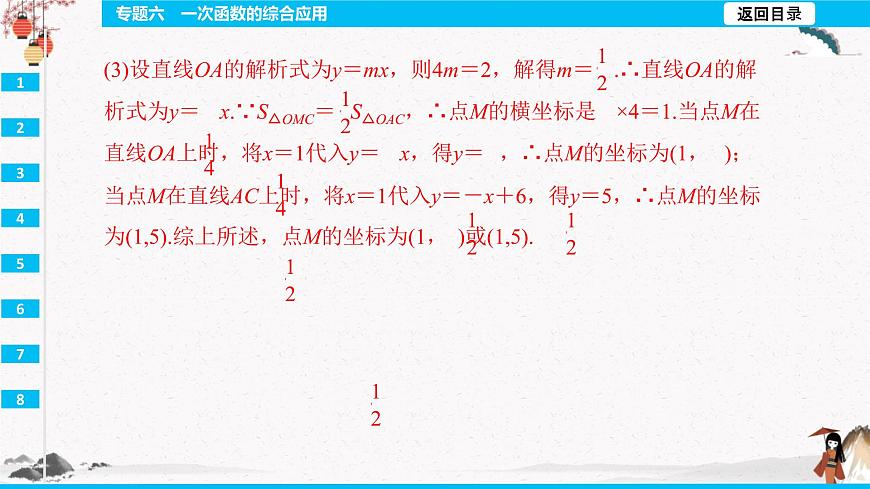 专题六 一次函数的综合应用
返回目录
(3)设直线OA的解析式为y=mx，则4m=2，解得m= 1/2 .∴直线OA的解
析式为y= x.∵S△OMC= 1/2 S△OAC，∴点M的横坐标是 ×4=1.当点M在
直线OA上时，将x=1代入y= x，得y= ，∴点M的坐标为(1， )；
1/4
当点M在直线AC上时，将x=1代入y=－x+6，得y=5，∴点M的坐标
1/4
为(1,5).综上所述，点M的坐标为(1， )或(1,5).
1/2
1/2
1/2
1/2
1
2
3
4
5
6
7
8